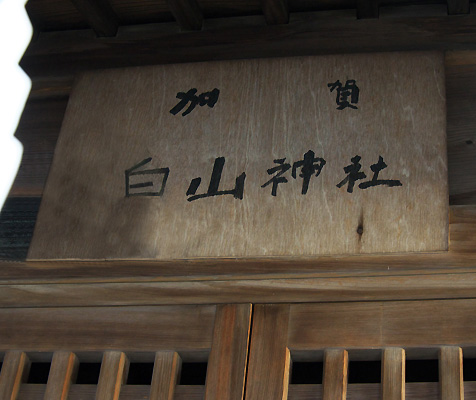 加賀
白山神社